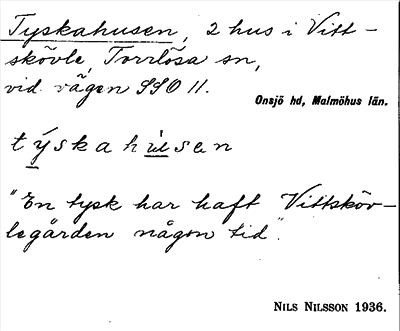 Tyskahusen, 2 hus i Vitt-
skövle, Torrlösa sn,
vid vägen SSO 11.
Onsjö hd, Malmöhus län.
týskahu̇sen
"En tysk har haft Vittsköv-
legården någon tid".
NILS NILSSON 1936.